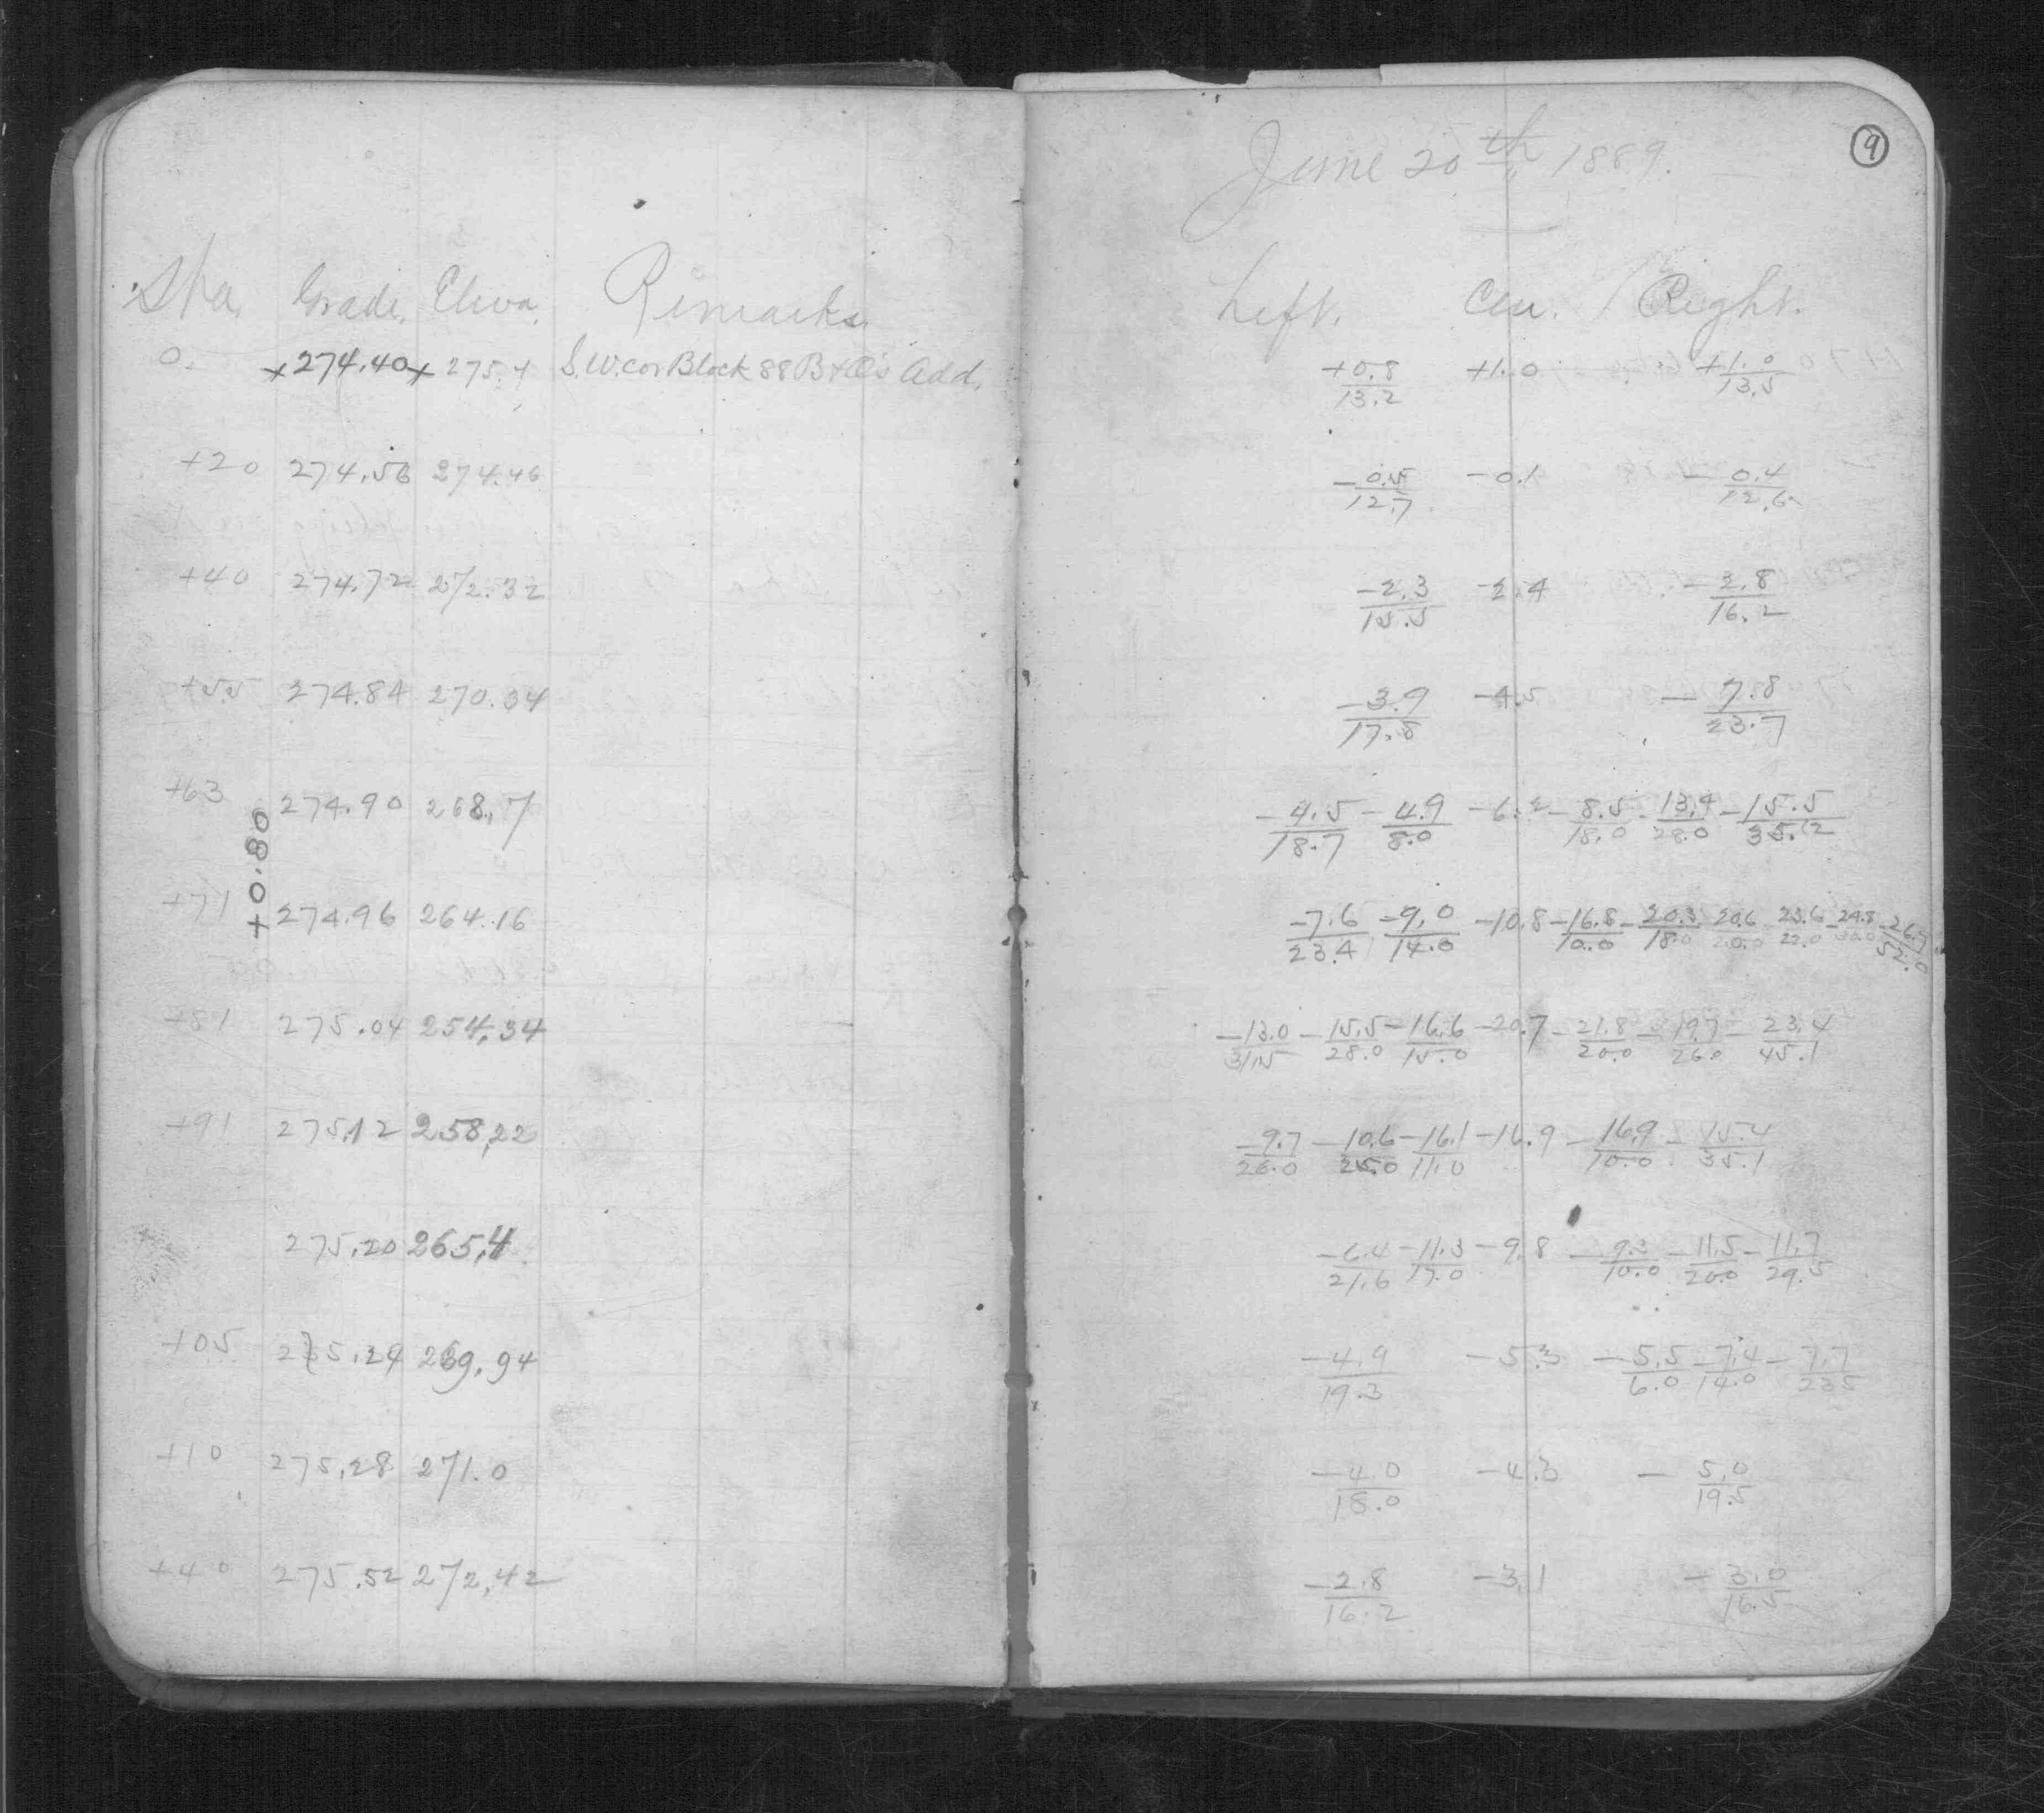 Sta. Grade. Eleva. Remarks.
0. x 274.40 x 275.4 S.W. cor Block 88 B & O's Add.
+20 274.56 274.46
+40 274.72 272.32
+55 274.84 270.34
+63 274.90 268.7
+0.80
+71 274.96 264.16
+81 275.04 254.34
+91 275.12 258.22
275.20 265.4
+05 275.24 269.94
+10 275.28 271.0
+40 275.52 272.42
9
June 20th 1889.
Left. Cen. Right.
+0.8/13.2 +1.0 +1.0/13.5
-0.5/12.7 -0.1 -0.4/12.6
-2.3/15.5 -2.4 -2.8/16.2
-3.9/17.8 -4.5 -7.8/23.7
-4.5/18.7 -4.9/8.0 -6.2 -8.5/18.0 -13.4/28.0 -15.5/35.2
-7.6/23.4 -9.0/14.0 -10.8 -16.8/10.0 -20.3/18.0 -20.6/20.0 -23.6/22.0 -24.8/30.0 -26.7/52.0
-13.0/31.5 -15.5/28.0 -16.6/15.0 -20.7 -21.8/20.0 -19.7/26.0 -23.4/45.1
-9.7/26.0 -10.6/25.0 -16.1/11.0 -16.9 -16.9/10.0 -15.4/35.1
-6.4/21.6 -11.3/17.0 -9.8 -9.3/10.0 -11.5/20.0 -11.7/29.5
-4.9/19.3 -5.3 -5.5/6.0 -7.4/14.0 -7.7/23.5
-4.0/18.0 -4.3 -5.0/19.5
-2.8/16.2 -3.1 -3.0/16.5